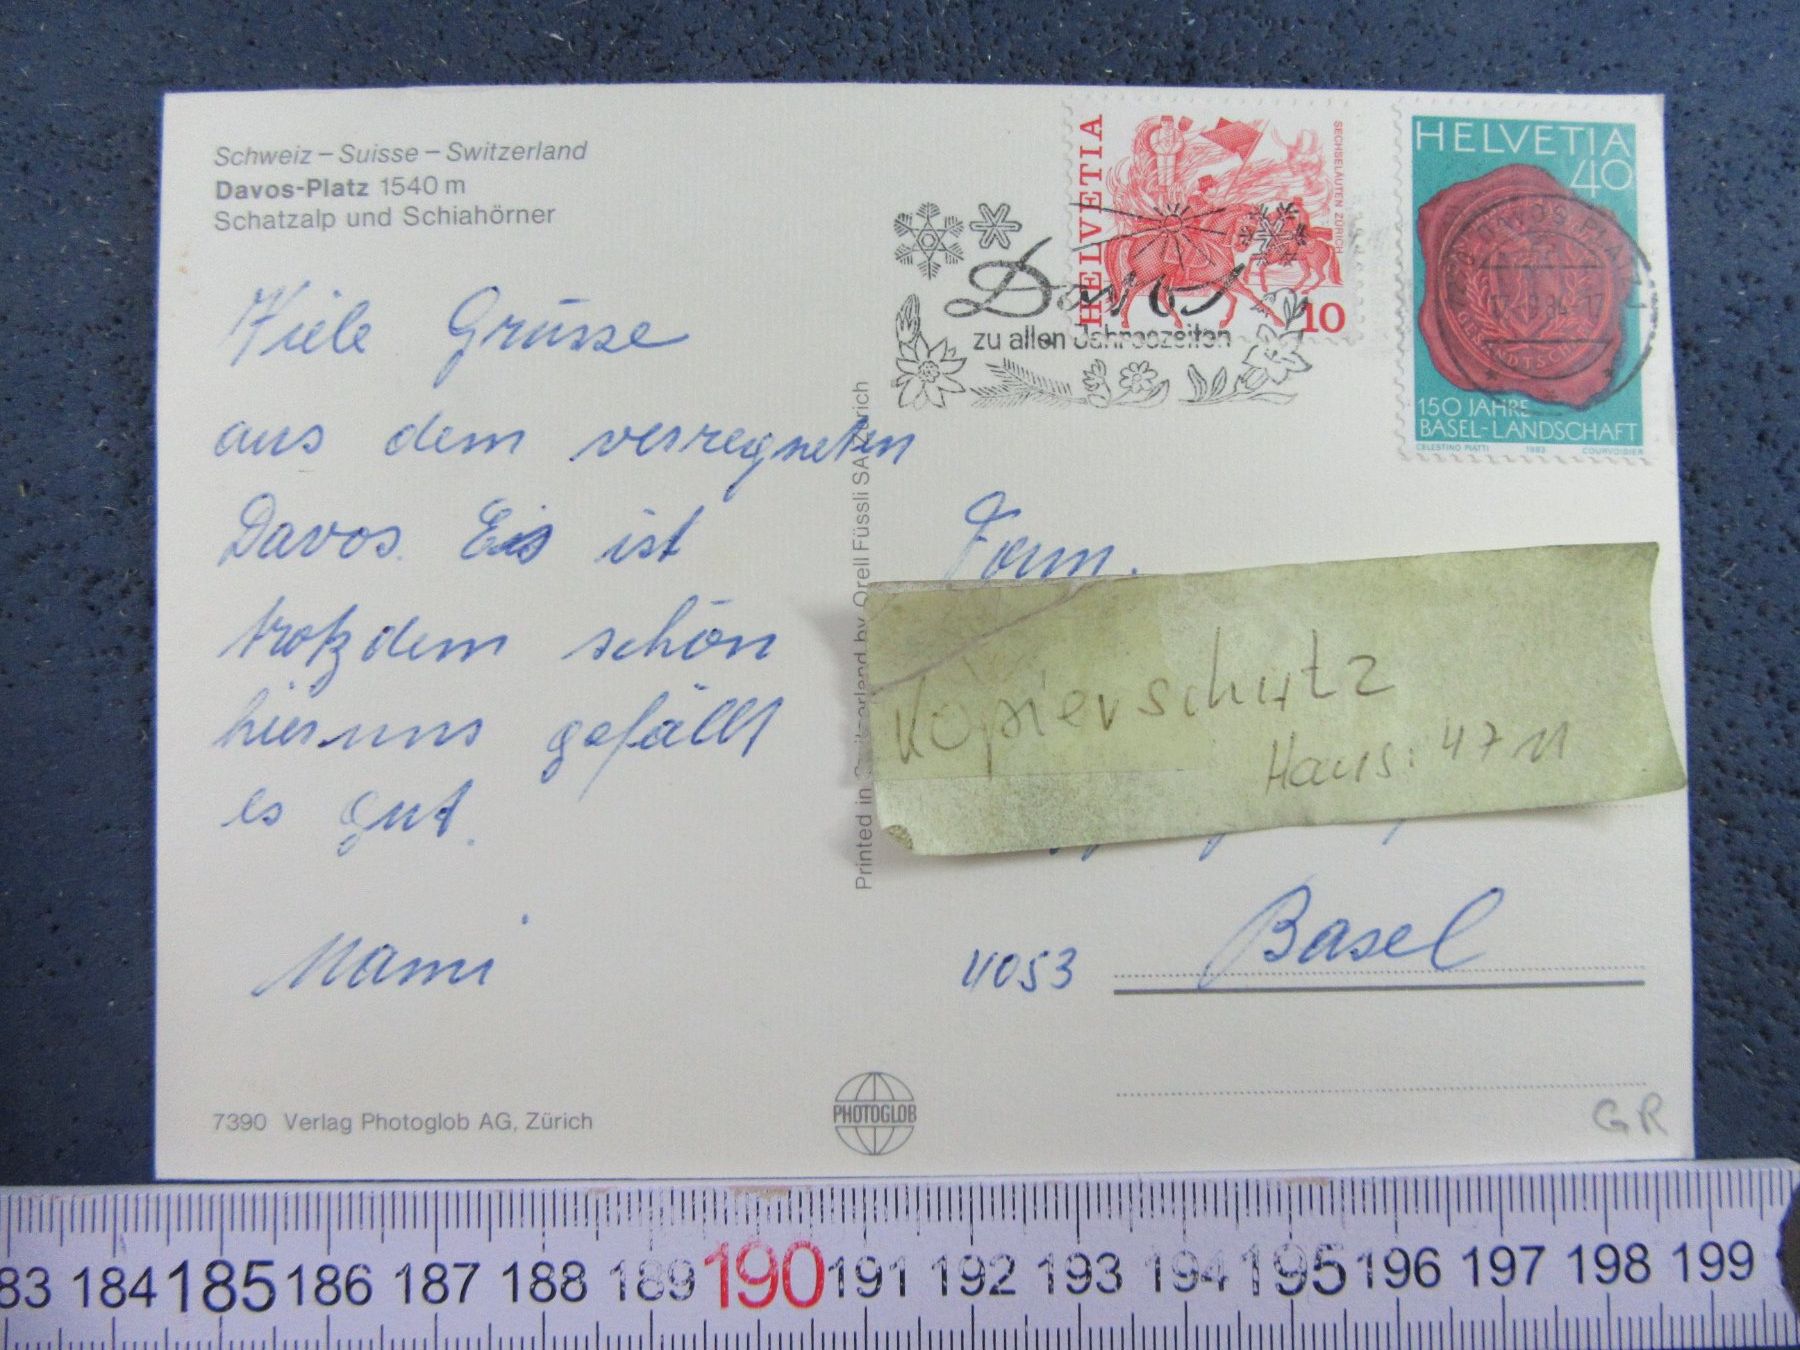 Schweiz – Suisse – Switzerland
Davos-Platz 1540 m
Schatzalp und Schiahörner
Viele Grüsse
aus dem verregneten
Davos. Es ist
trotzdem schön
hier uns gefällt
es gut.
Mami
7390 Verlag Photoglob AG, Zürich
Printed in Switzerland by Orell Füssli SA Zürich
PHOTOGLOB
HELVETIA
SECHSELÄUTEN ZÜRICH
10
Davos
zu allen Jahreszeiten
HELVETIA
40
DAVOS PLATZ 1
GESANDTSCH
150 JAHRE
BASEL-LANDSCHAFT
CELESTINO PIATTI 1983 COURVOISIER
Fam.
Kopierschutz
Hans: 4711
4053 Basel
GR
83 184 185 186 187 188 189 190 191 192 193 194 195 196 197 198 199